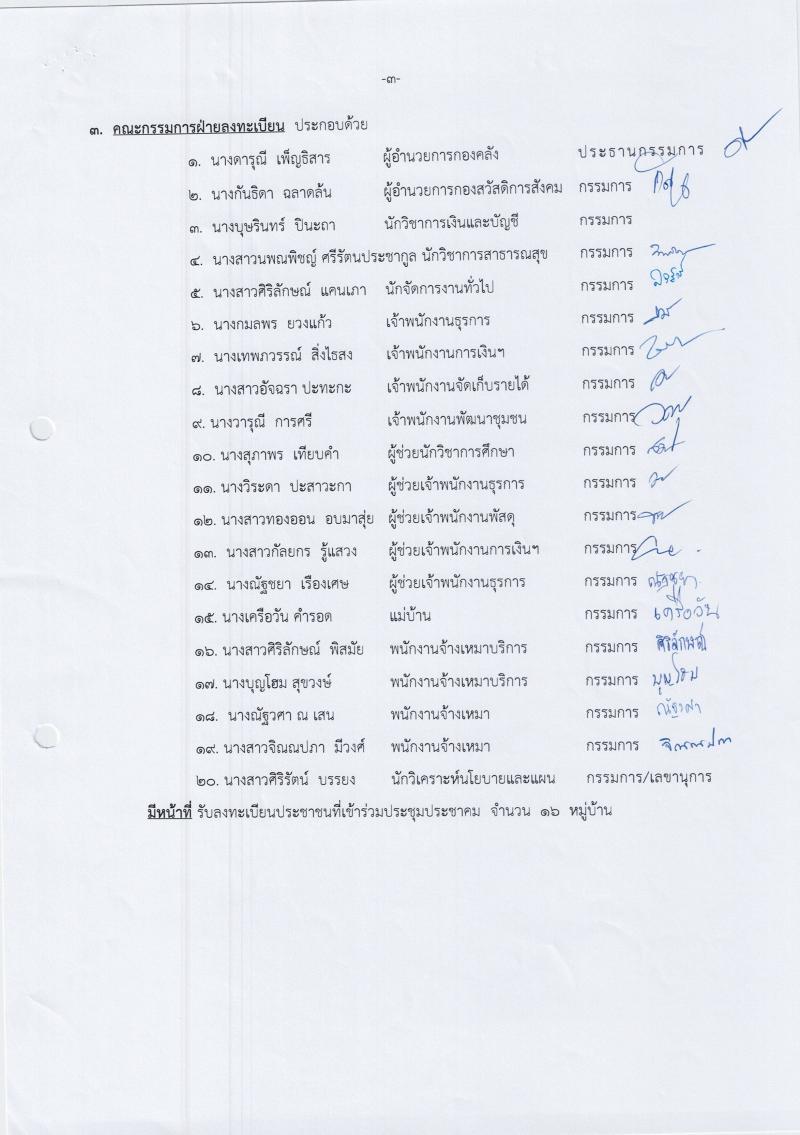 -๓-
๓. คณะกรรมการฝ่ายลงทะเบียน ประกอบด้วย
๑. นางดารุณี เพ็ญธิสาร ผู้อำนวยการกองคลัง ประธานกรรมการ
๒. นางกันธิดา ฉลาดล้น ผู้อำนวยการกองสวัสดิการสังคม กรรมการ
๓. นางบุษรินทร์ ปินะถา นักวิชาการเงินและบัญชี กรรมการ
๔. นางสาวนพณพิชญ์ ศรีรัตนประชากูล นักวิชาการสาธารณสุข กรรมการ
๕. นางสาวศิริลักษณ์ แคนเภา นักจัดการงานทั่วไป กรรมการ
๖. นางกมลพร ยวงแก้ว เจ้าพนักงานธุรการ กรรมการ
๗. นางเทพภวรรณ์ สิ่งไธสง เจ้าพนักงานการเงินฯ กรรมการ
๘. นางสาวอัจฉรา ปะทะกะ เจ้าพนักงานจัดเก็บรายได้ กรรมการ
๙. นางวารุณี การศรี เจ้าพนักงานพัฒนาชุมชน กรรมการ
๑๐. นางสุภาพร เทียบคำ ผู้ช่วยนักวิชาการศึกษา กรรมการ
๑๑. นางวิระดา ปะสาวะกา ผู้ช่วยเจ้าพนักงานธุรการ กรรมการ
๑๒. นางสาวทองออน อบมาสุ่ย ผู้ช่วยเจ้าพนักงานพัสดุ กรรมการ
๑๓. นางสาวกัลยกร รู้แสวง ผู้ช่วยเจ้าพนักงานการเงินฯ กรรมการ
๑๔. นางณัฐชยา เรืองเศษ ผู้ช่วยเจ้าพนักงานธุรการ กรรมการ ณัฐชยา
๑๕. นางเครือวัน คำรอด แม่บ้าน กรรมการ เครือวัน
๑๖. นางสาวศิริลักษณ์ พิสมัย พนักงานจ้างเหมาบริการ กรรมการ ศิริลักษณ์
๑๗. นางบุญโฮม สุขวงษ์ พนักงานจ้างเหมาบริการ กรรมการ บุญโฮม
๑๘. นางณัฐวศา ณ เสน พนักงานจ้างเหมา กรรมการ ณัฐวศา
๑๙. นางสาวจิณณปภา มีวงศ์ พนักงานจ้างเหมา กรรมการ จิณณปภา
๒๐. นางสาวศิริรัตน์ บรรยง นักวิเคราะห์นโยบายและแผน กรรมการ/เลขานุการ
มีหน้าที่ รับลงทะเบียนประชาชนที่เข้าร่วมประชุมประชาคม จำนวน ๑๖ หมู่บ้าน